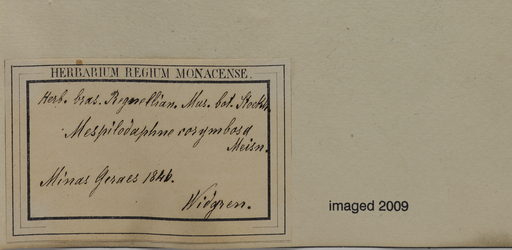 HERBARIUM REGIUM MONACENSE.
Herb. bras. Regnellian. Mus. bot. Stockh.
Mespilodaphne corymbosa
Meisn.
Minas Geraes 1846.
Widgren.
imaged 2009